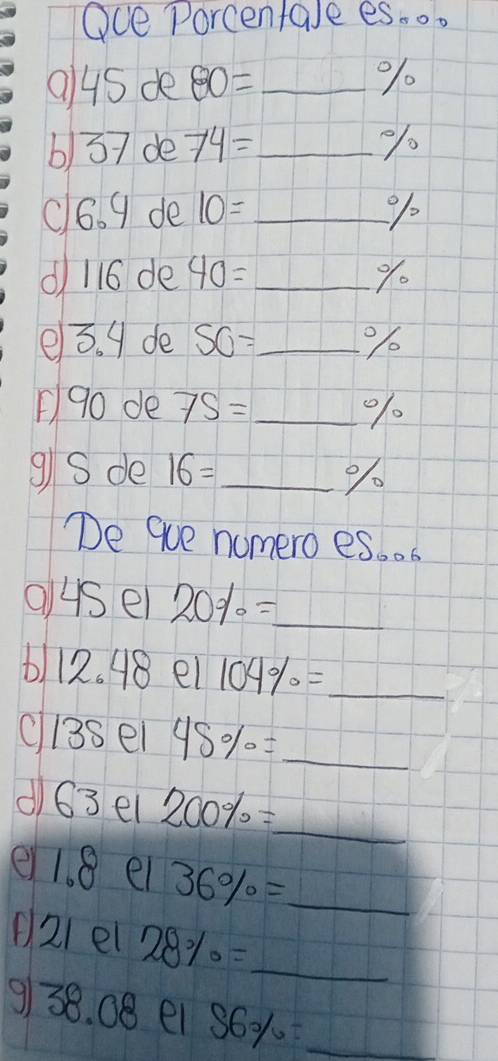 Que Porcentaje es...
a) 45 de 80 = ____ %
b) 37 de 74 = ____ %
c) 6.4 de 10 = ____ %
d) 116 de 40 = ____ %
e) 3.4 de 50 = ____ %
F) 90 de 75 = ____ %
g) 5 de 16 = ____ %
De que numero es...
a) 45 el 20% = ____
b) 12.48 el 104% = ____
c) 135 el 45% = ____
d) 63 el 200% = ____
e) 1.8 el 36% = ____
F) 21 el 28% = ____
g) 38.08 el 56% = ____